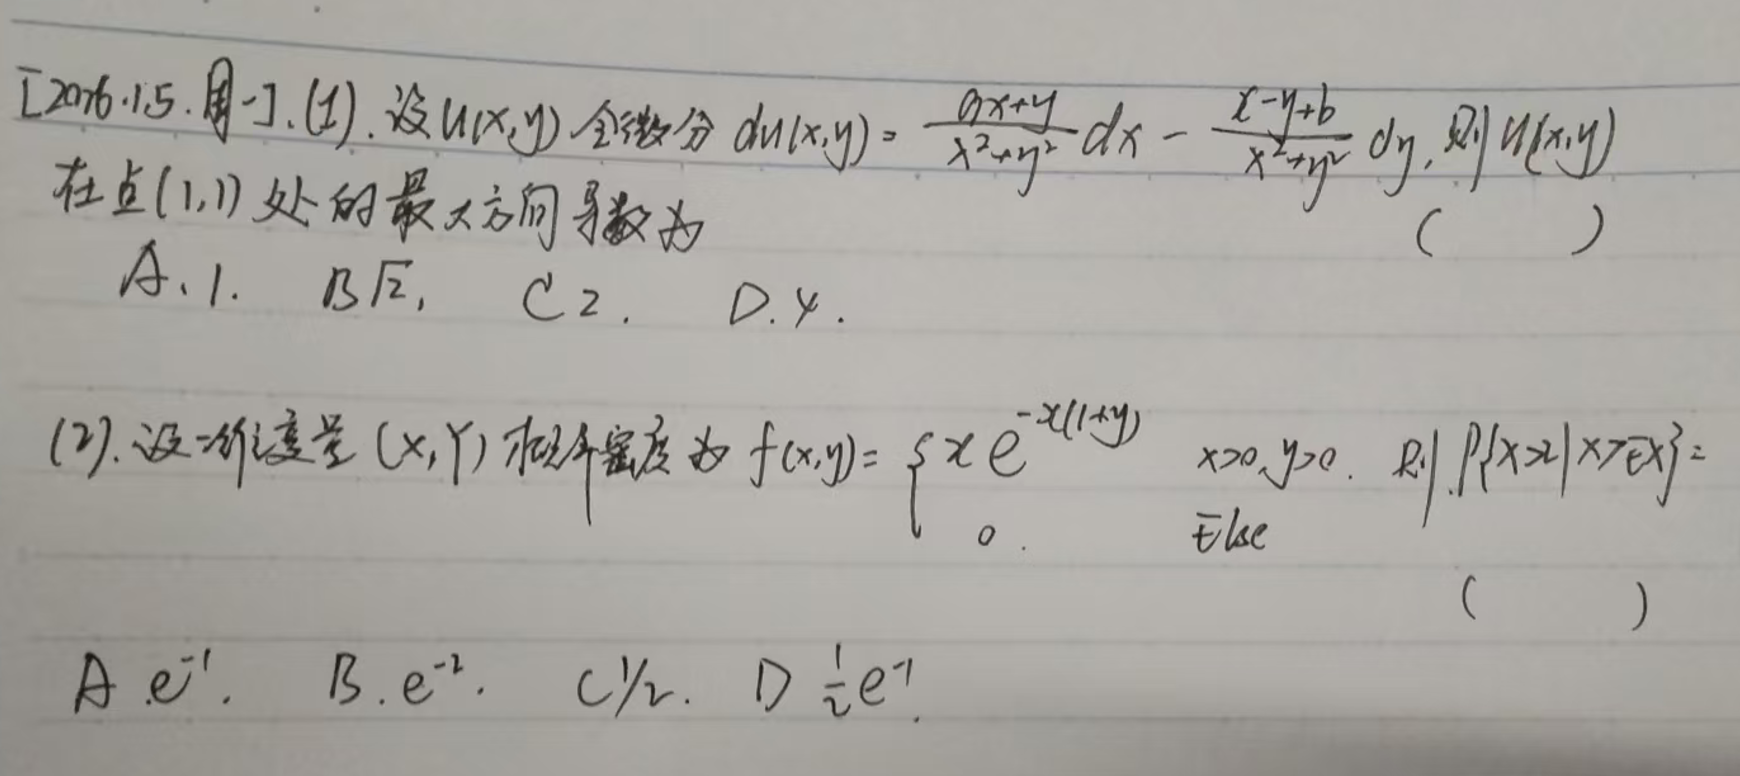 [2026.1.5.周一].(1).设u(x,y)全微分 du(x,y)= \frac{ax+y}{x²+y²}dx - \frac{x-y+b}{x²+y²}dy,则u(x,y)
在点(1,1)处的最大方向导数为 ( )
A.1. B√2. C 2. D.4.
(2).设二维变量(X,Y)概率密度为f(x,y)= { xe^{-x(1+y)} x>0,y>0. 则.P{X>2|X>EX}=
0. Else
( )
A e^{-1}. B.e^{-2}. C 1/2. D \frac{1}{2}e^{-1}.